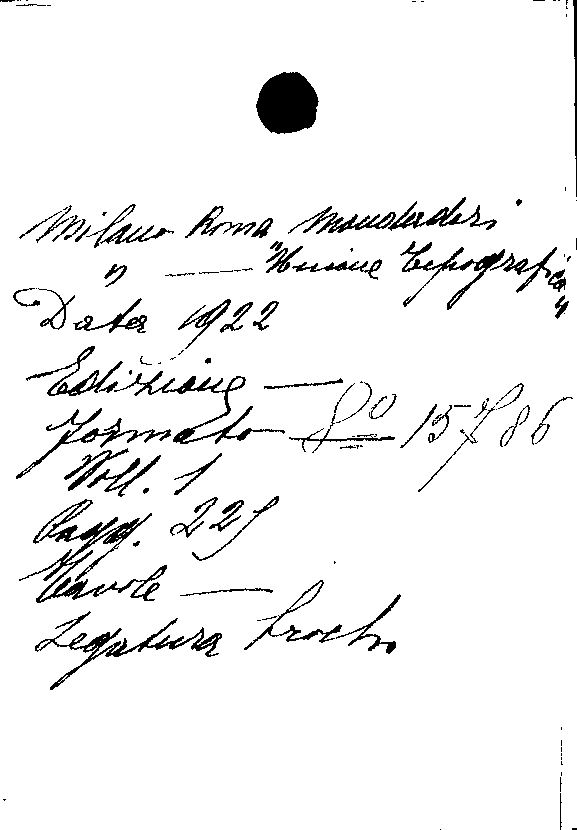 Milano Roma Mondadori
" — "Unione Tipografica"
Data 1922
Edizione —
Formato 8º 15786
Voll. 1
Pagg. 225
Tavole —
Legatura broch.